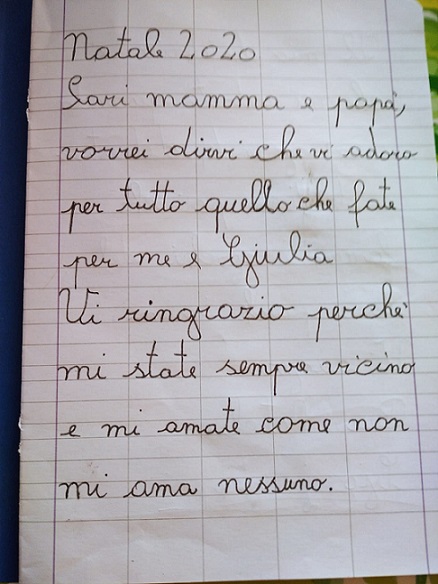 Natale 2020
Cari mamma e papà,
vorrei dirvi che vi adoro
per tutto quello che fate
per me e Giulia
Vi ringrazio perchè
mi state sempre vicino
e mi amate come non
mi ama nessuno.